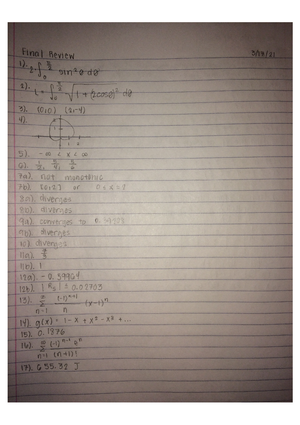 Final Review
1). 2 ∫ sin² θ dθ
2). L = ∫ √1 + (2cosθ)² dθ
3). (0,0) (2,-4)
4).
5). -∞ < x < ∞
6).
7a). not monotonic
7b). [0,2] or
8a). diverges
8b). diverges
9a). converges to
9b). diverges
10). diverges
11a).
11b). 1
12a). -0.59964
12b). | | = 0.02703
13). ∞ Σ n=1 (-1)ⁿ⁺¹ / n (x-1)ⁿ
14). g(x) = 1 - x + x² - x³ + ...
15). 0.1376
16). ∞ Σ n=1 (-1)ⁿ⁻¹ / (n+1)!
17). 655.32 J